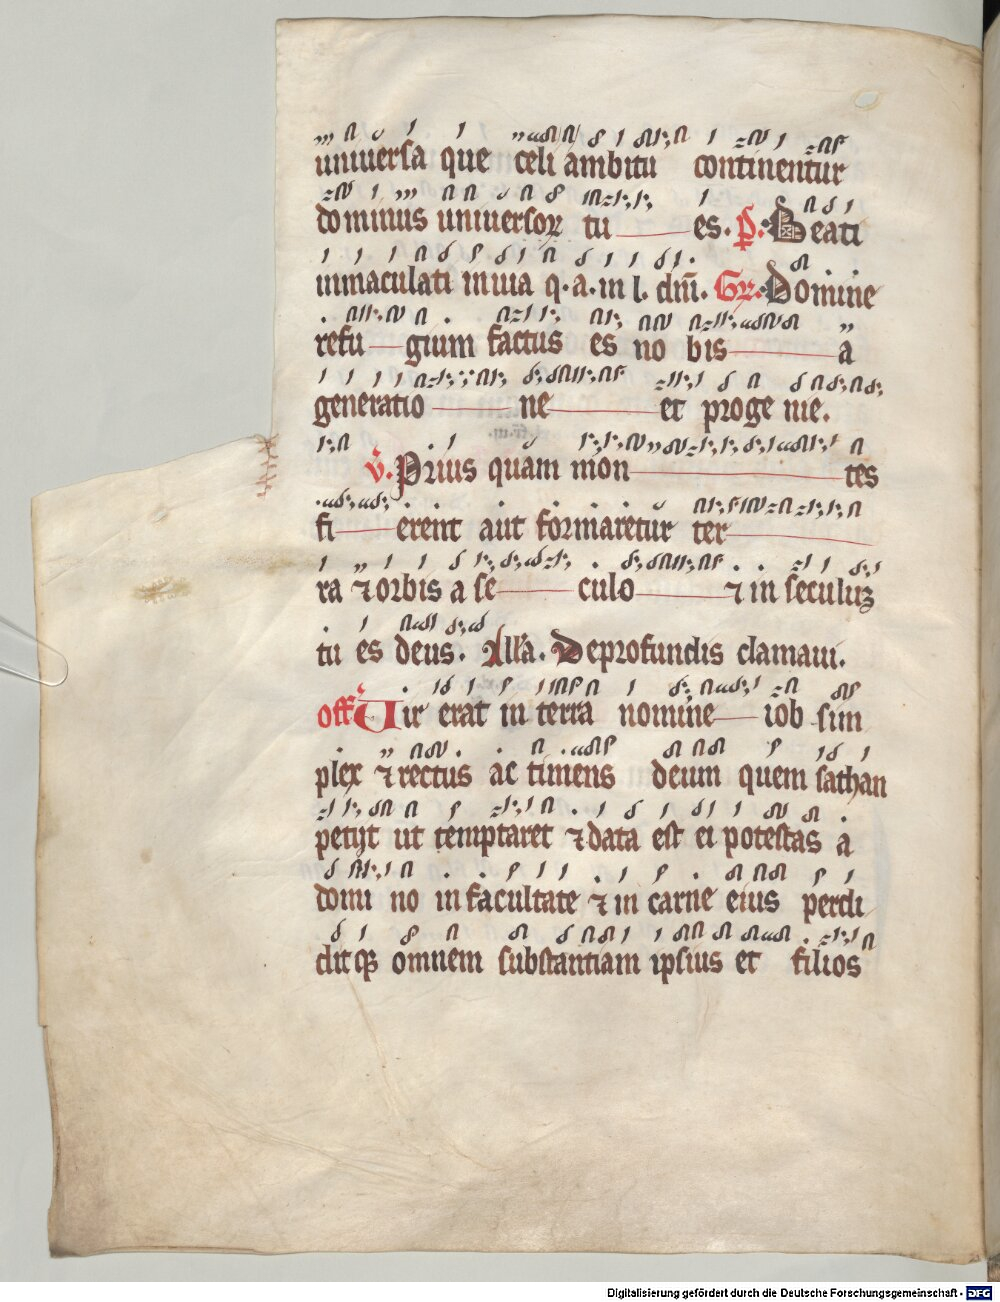 uniuersa que celi ambitu continentur
dominus uniuersoꝝ tu es. p̄. Beati
inmaculati in uia q. a. in l. dn̄i. Gr. Domine
refu gium factus es no bis a
generatio ne et proge nie.
v̄. Prius quam mon tes
fi erent aut formaretur ter
ra ⁊ orbis a se culo ⁊ in seculuꝫ
tu es deus. Allꝛa. De profundis clamaui.
off Uir erat in terra nomine iob sim
plex ⁊ rectus ac timens deum quem sathan
petijt ut temptaret ⁊ data est ei potestas a
domi no in facultate ⁊ in carne eius perdi
ditqꝫ omnem substantiam ipsius et filios
Digitalisierung gefördert durch die Deutsche Forschungsgemeinschaft - DFG